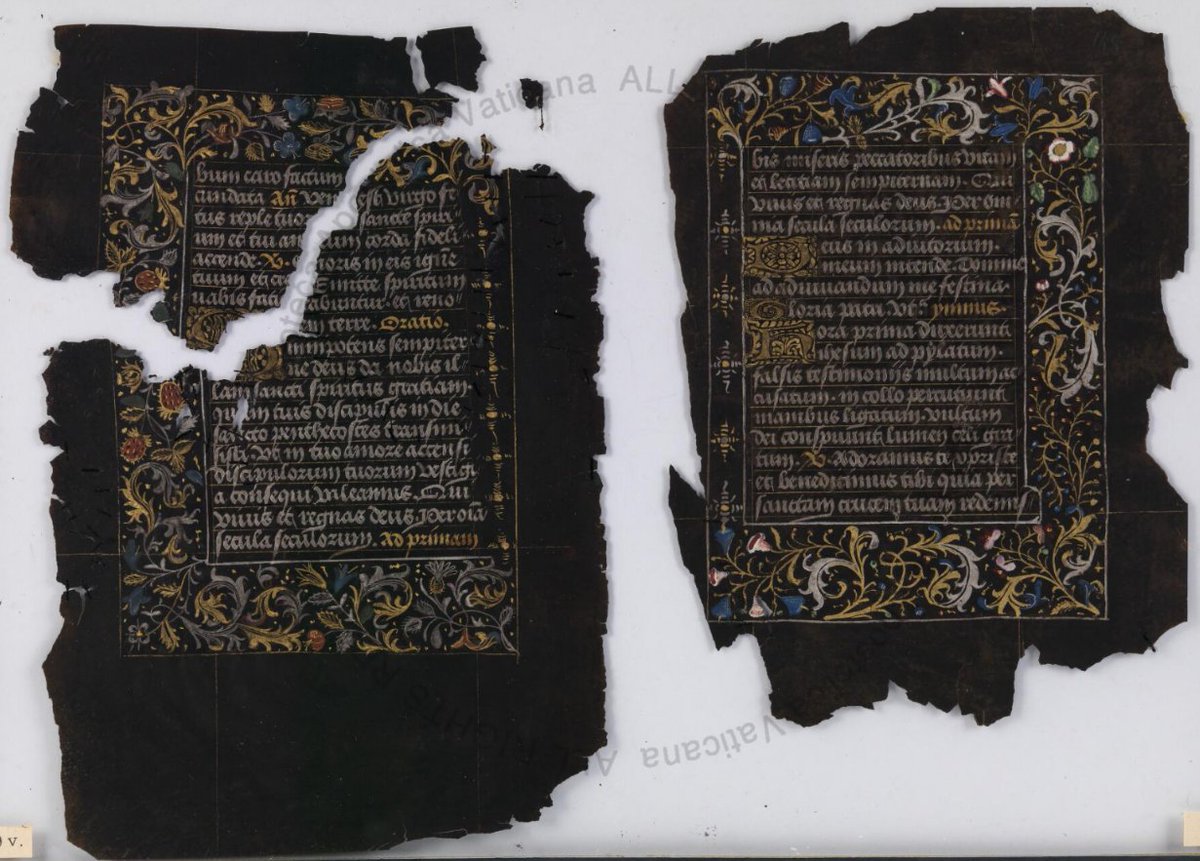 bum caro factum
cundata An Ven est virgo fe
tus reple tuor sancte spiri
um et tui am tum corda fideli
accende. V. moris in eis igne
tuum et ce Emitte spiritum
uabis facie ribuntur. et reno
em terre. Oratio.
mnipotens sempiter
ne deus da nobis il
lam sancti spiritus gratiam.
quam tuis discipulis in die
sancto penthecostes transmi
sisti. Vt in tuo amore accensi
discipulorum tuorum vestigi
a consequi valeamus. Qui
viuis et regnas deus. Per oia
secula seculorum. Ad primam
bis miseris peccatoribus vitam
et leticiam sempiternam. Qui
viuis et regnas deus. Per om
nia secula seculorum. ad prima
Deus in adiutorium
meum intende. Domine
ad adiuuandum me festina.
Gloria patri. Vt. ymnus.
Hora prima duxerunt
ihesum ad pylatum.
falsis testimonijs multum ac
cusatum. in collo percutiunt
manibus ligatum. vultum
dei conspuunt lumen celi gra
tum. V. Adoramus te xpriste
et benedicimus tibi quia per
sanctam crucem tuam redemis
Vaticana ALL
Vaticana A
v.